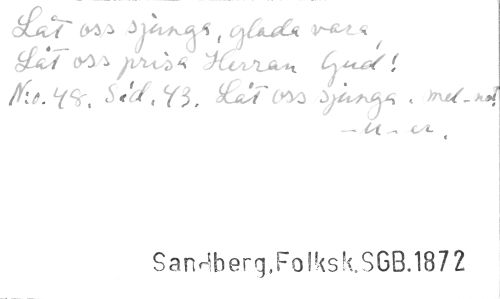 Låt oss sjunga, glada vara,
Låt oss prisa Herran Gud!
N:o. 48. Sid. 43. Låt oss sjunga. mel-not
Sandberg,Folksk.SGB.1872